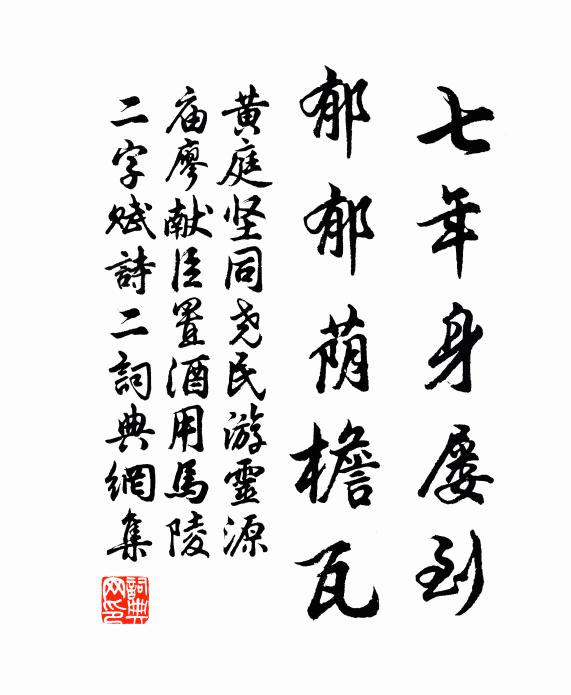 七年身屡到
郁郁荫檐瓦
黄庭坚同尧民游靈源
庙廖献臣置酒用馬陵
二字赋詩二詞典網集
詞典網印